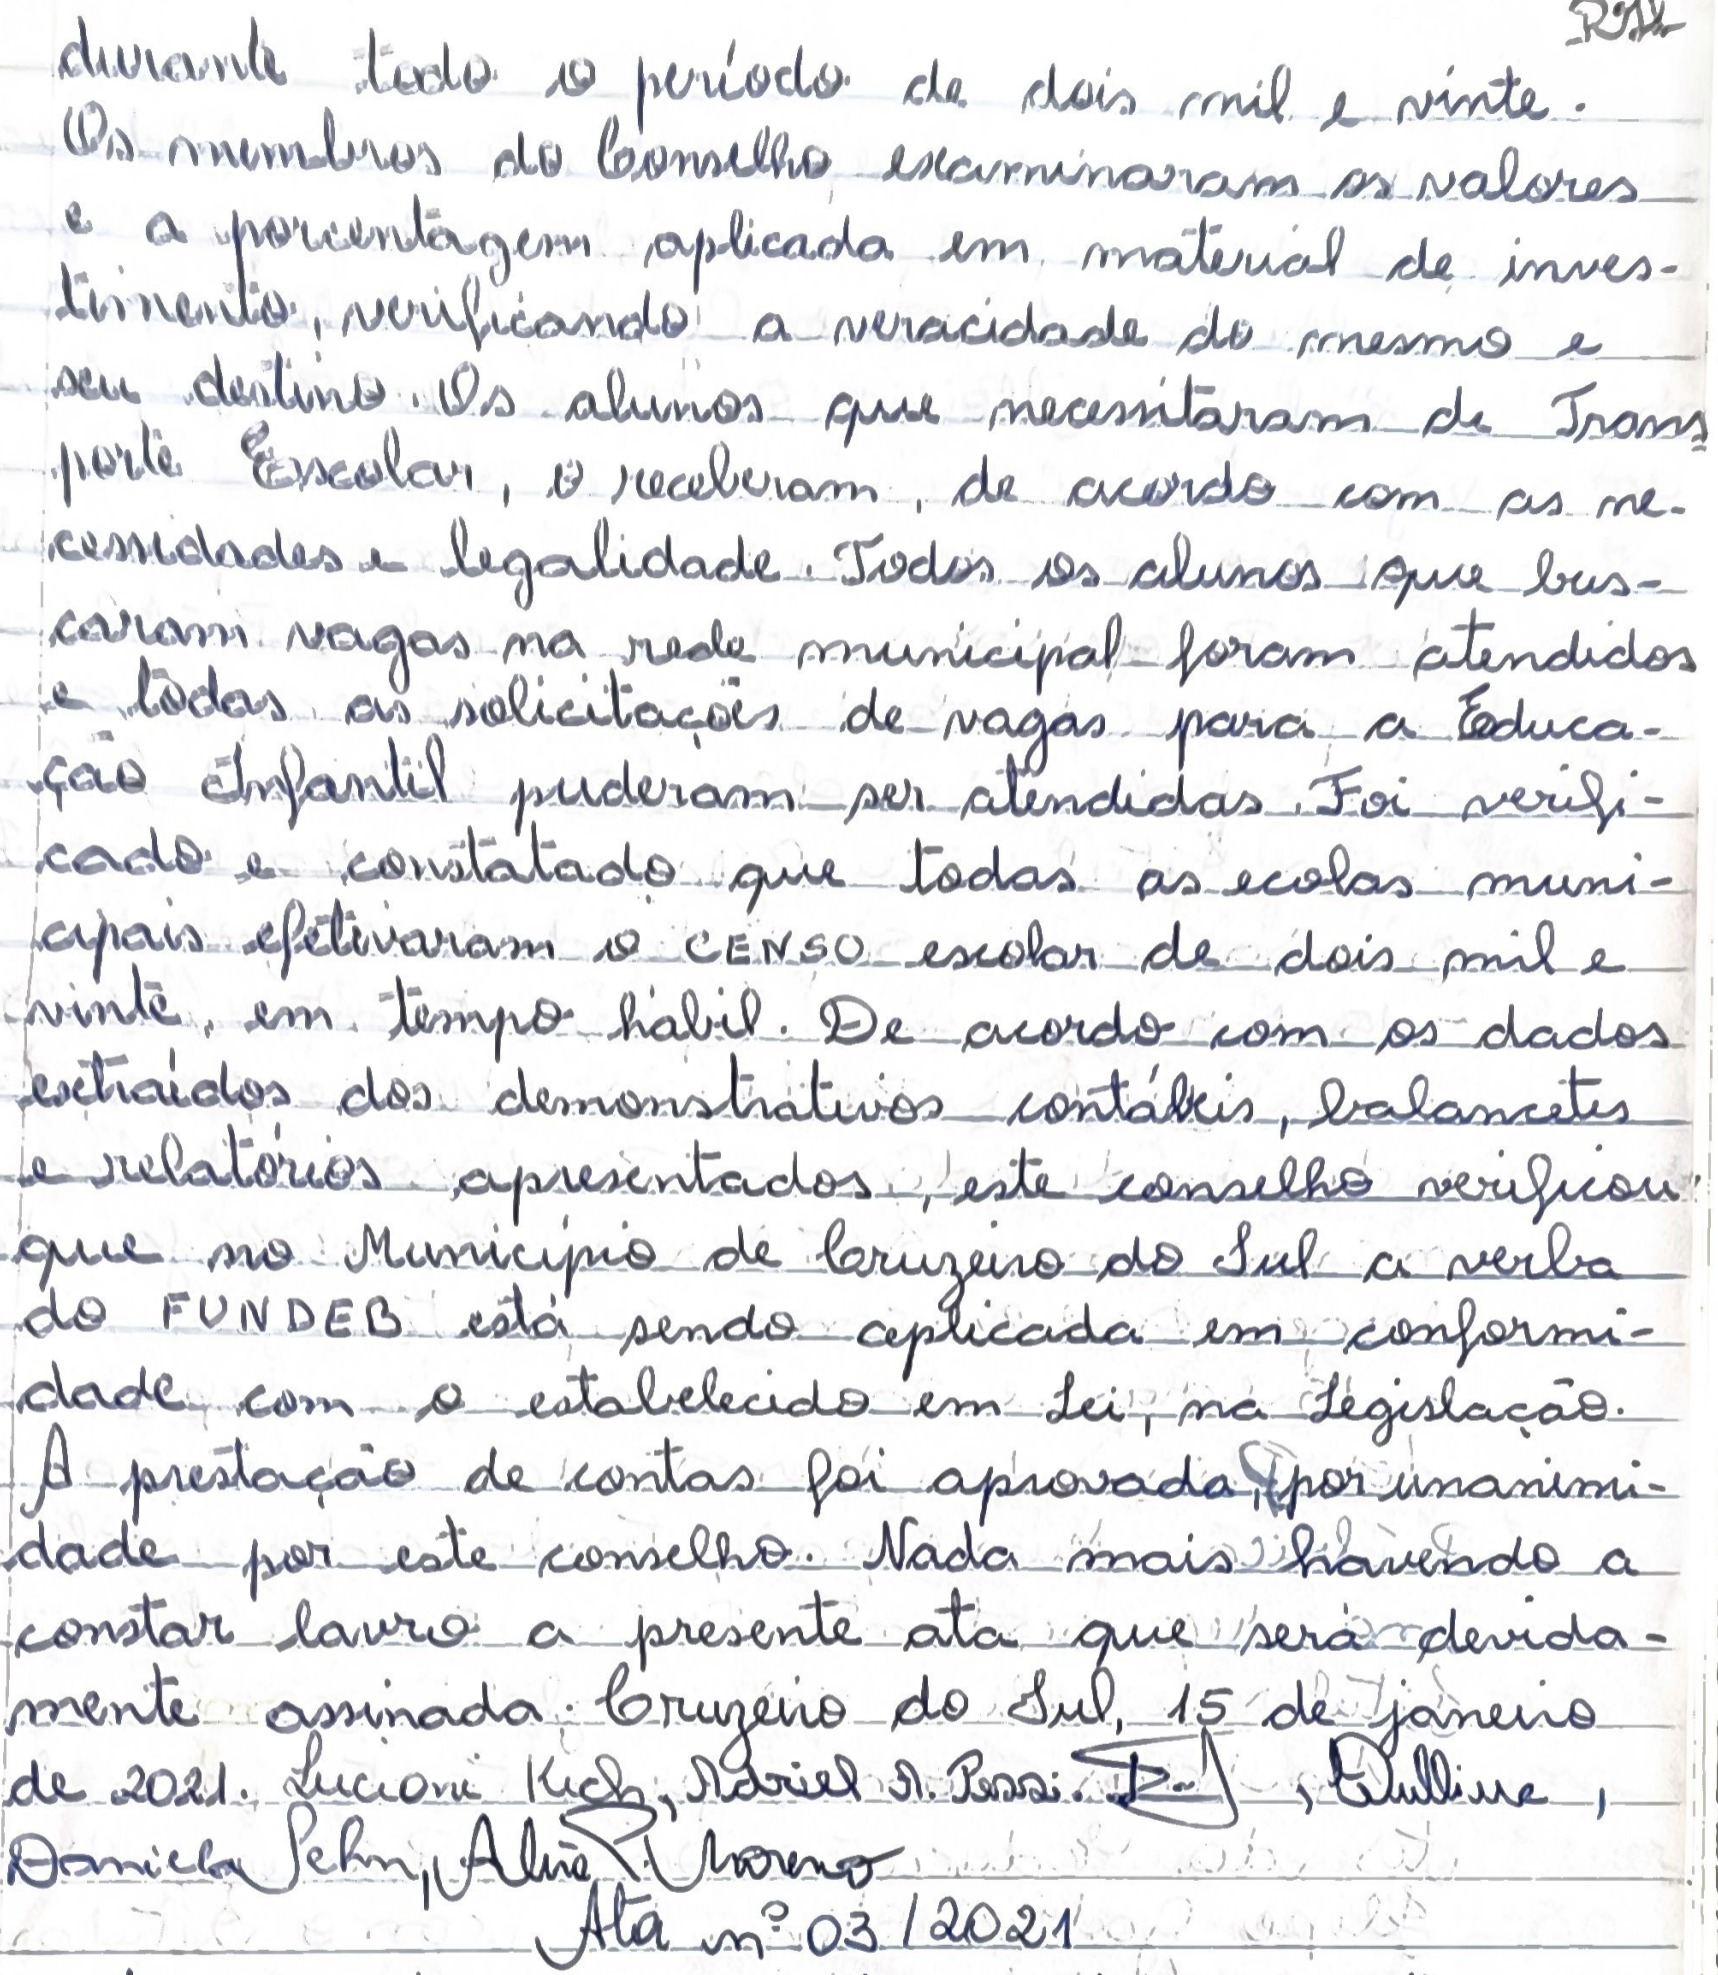 durante todo o período de dois mil e vinte.
Os membros do Conselho examinaram os valores
e a porcentagem aplicada em material de inves-
timento, verificando a veracidade do mesmo e
seu destino. Os alunos que necessitaram de Trans
porte Escolar, o receberam, de acordo com as ne-
cessidades e legalidade. Todos os alunos que bus-
caram vagas na rede municipal foram atendidos
e todas as solicitações de vagas para a Educa-
ção Infantil puderam ser atendidas. Foi verifi-
cado e constatado que todas as ecolas muni-
cipais efetivaram o CENSO escolar de dois mil e
vinte, em tempo hábil. De acordo com os dados
extraídos dos demonstrativos contábeis, balancetes
e relatórios apresentados, este conselho verificou
que no Município de Cruzeiro do Sul a verba
do FUNDEB está sendo aplicada em conformi-
dade com o estabelecido em Lei, na Legislação.
A prestação de contas foi aprovada, por unanimi-
dade por este conselho. Nada mais havendo a
constar lavro a presente ata que será devida-
mente assinada. Cruzeiro do Sul, 15 de janeiro
de 2021. Lucioni Kich, Adriel A. Pessi.
Daniela Sehn, Moreno
Ata nº 03/2021